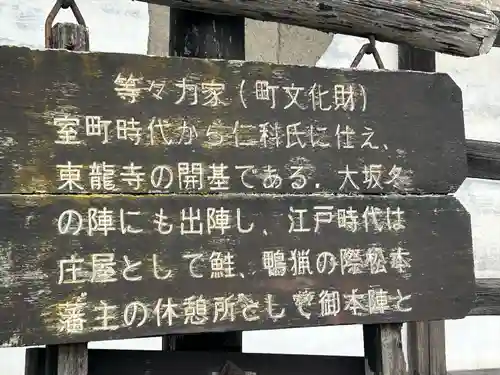 等々力家(町文化財)
室町時代から仁科氏に仕え、
東龍寺の開基である。大坂冬
の陣にも出陣し、江戸時代は
庄屋として鮭、鴨猟の際松本
藩主の休憩所として御本陣と